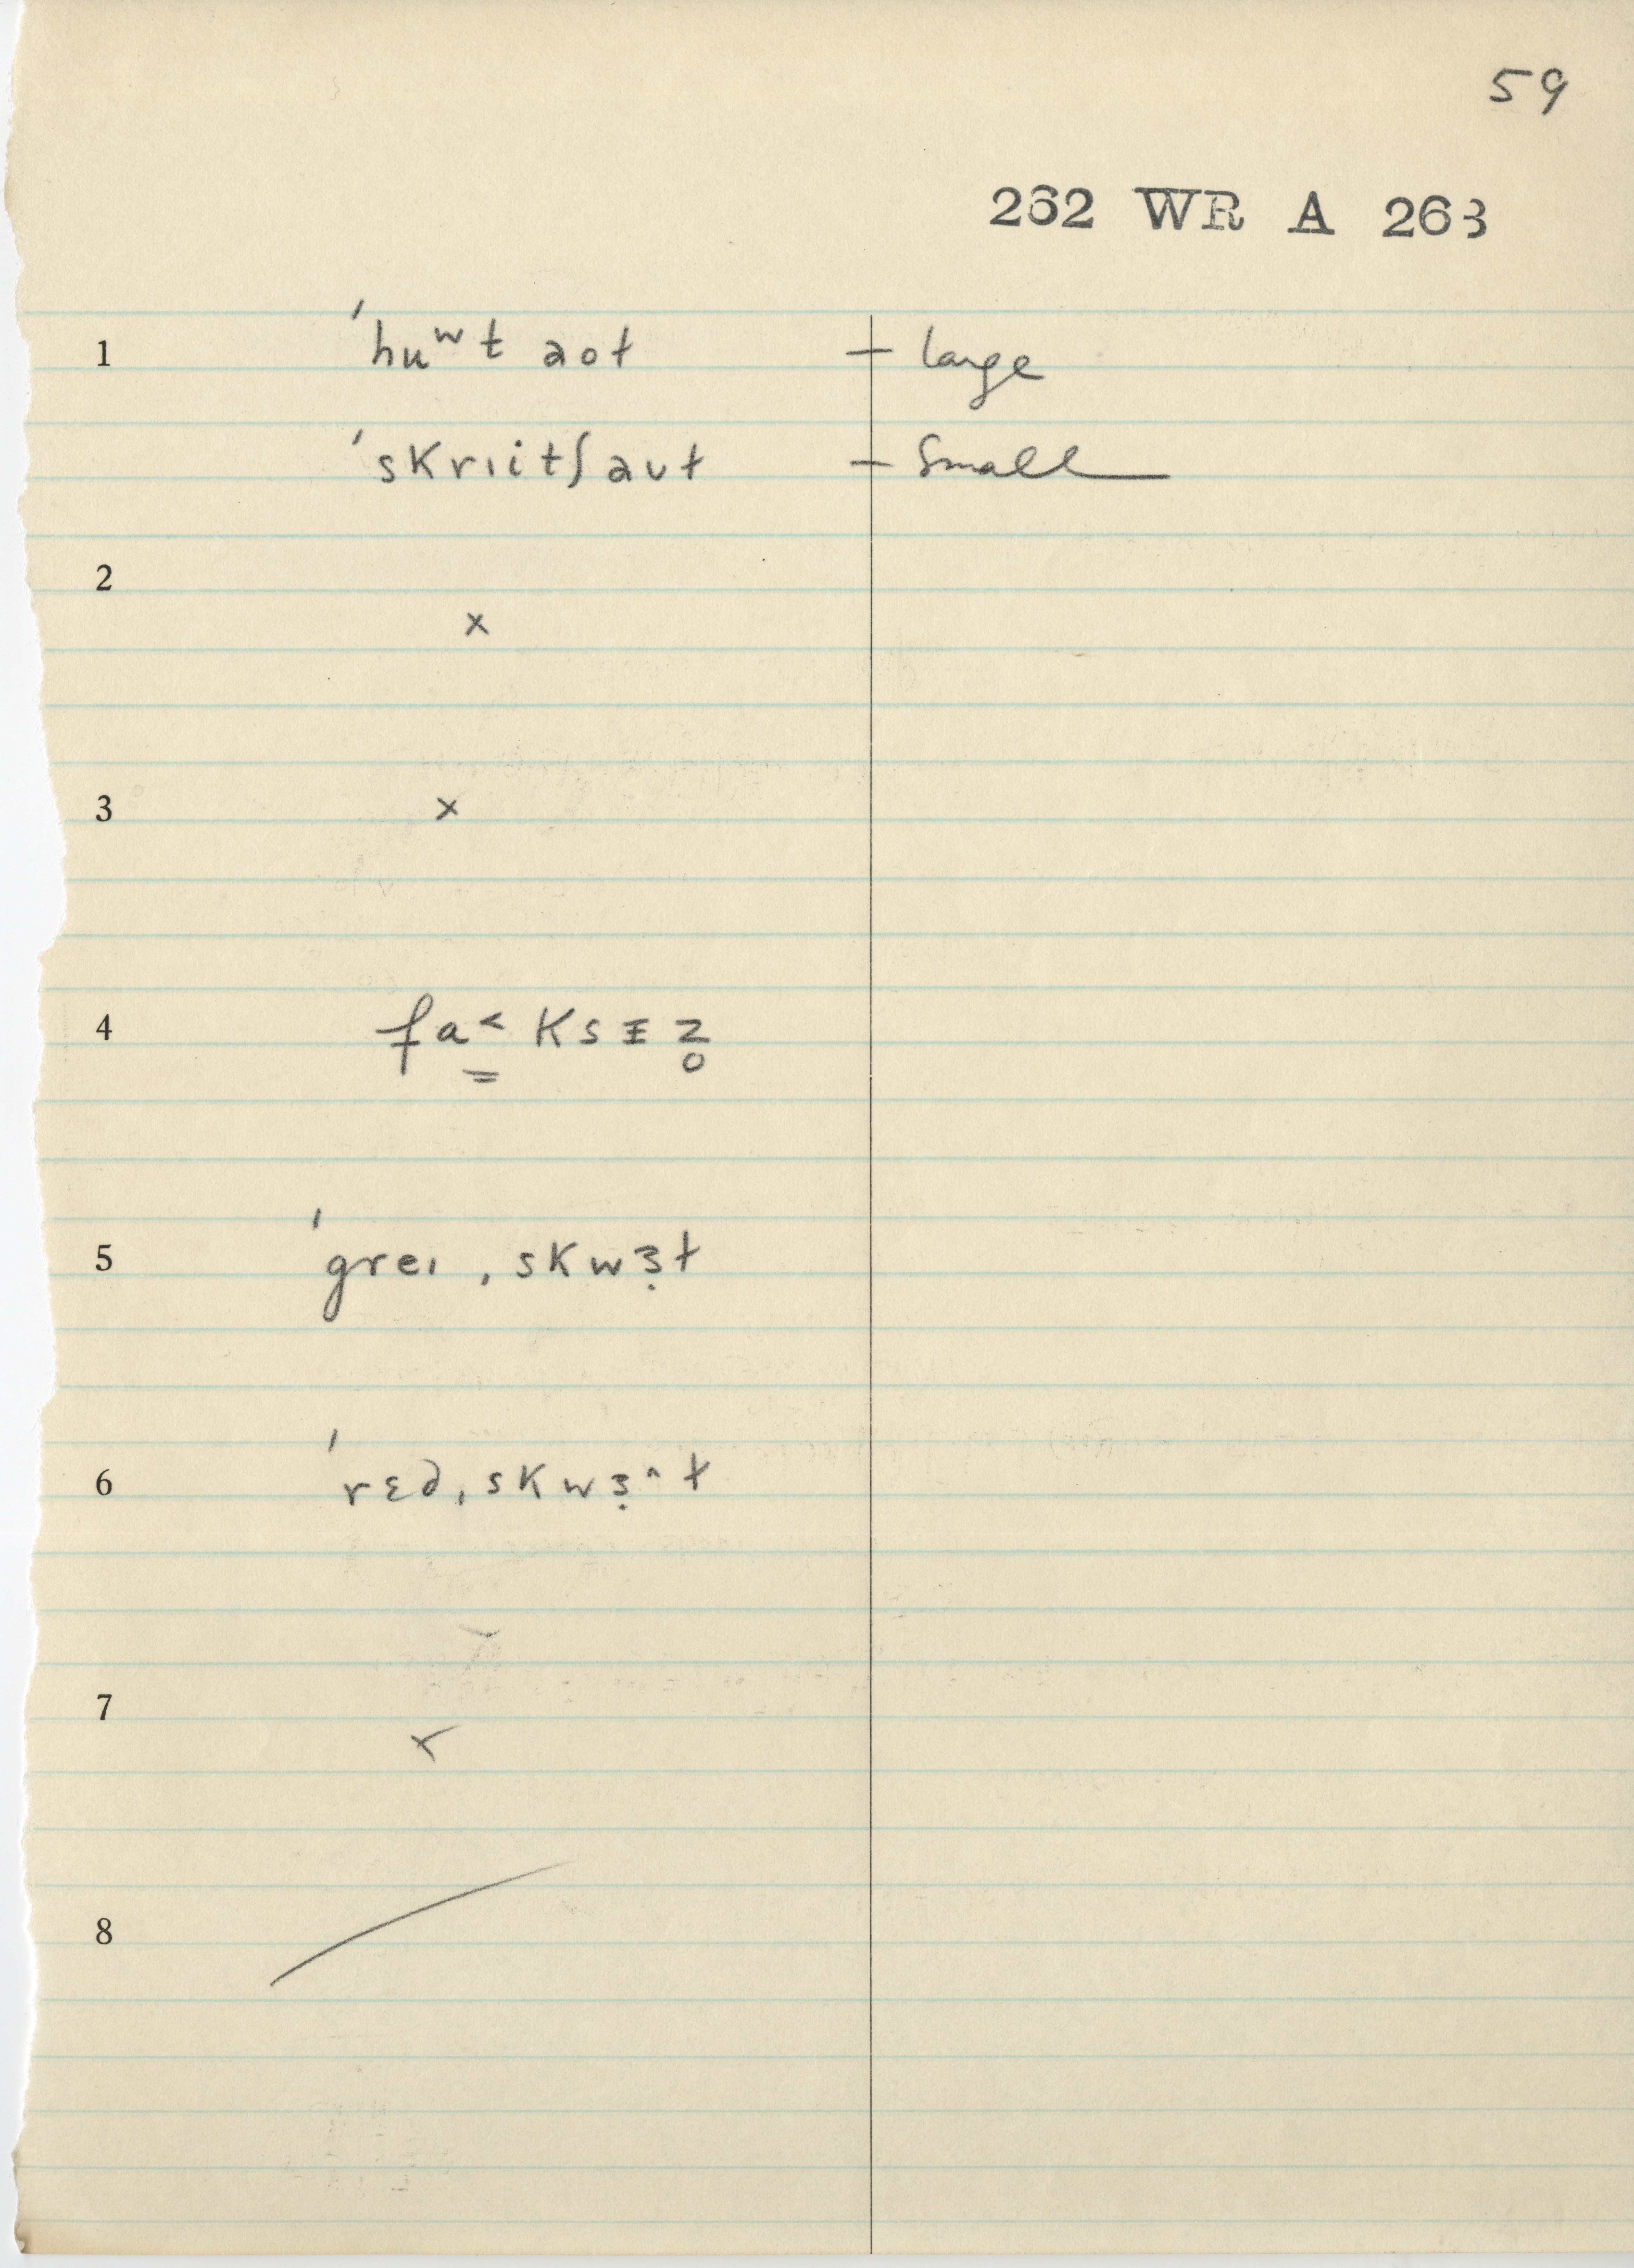 59
262 WR A 263
1 ˈhuʷt aot – large
ˈskrɪitʃ aʊt – Small
2 x
3 x
4 fa̳˂ksɪ̵z̥
5 ˈgreɪˌskwɜ̣t
6 ˈrɛdˌskwɜ̣˄t
7 x
8